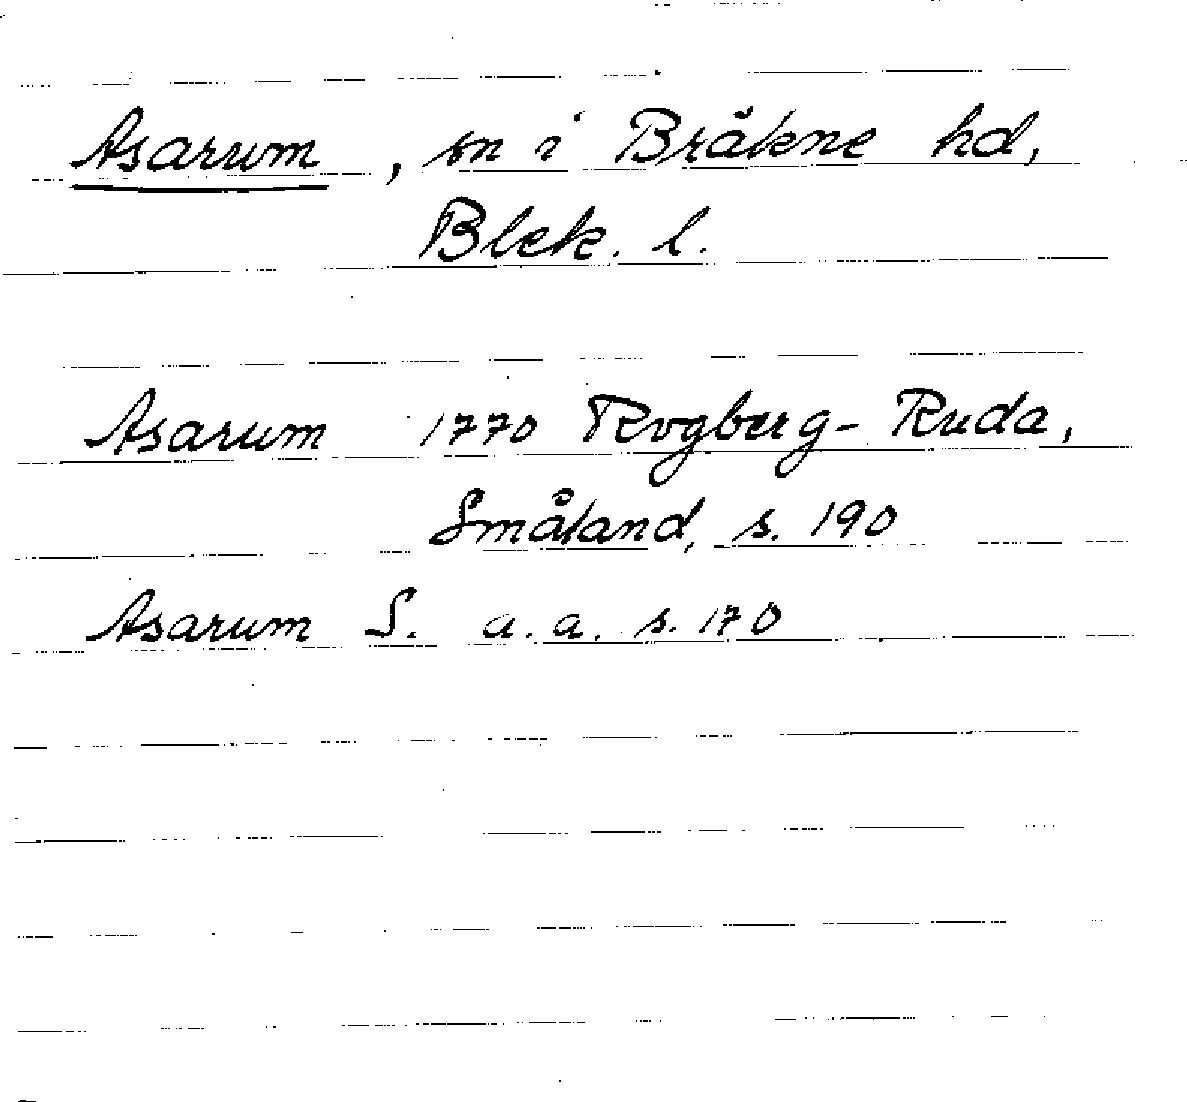 Asarum, sn i Bräkne hd,
Blek. l.
Asarum 1770 Rogberg-Ruda,
Småland, s. 190
Asarum S. a.a. s. 170